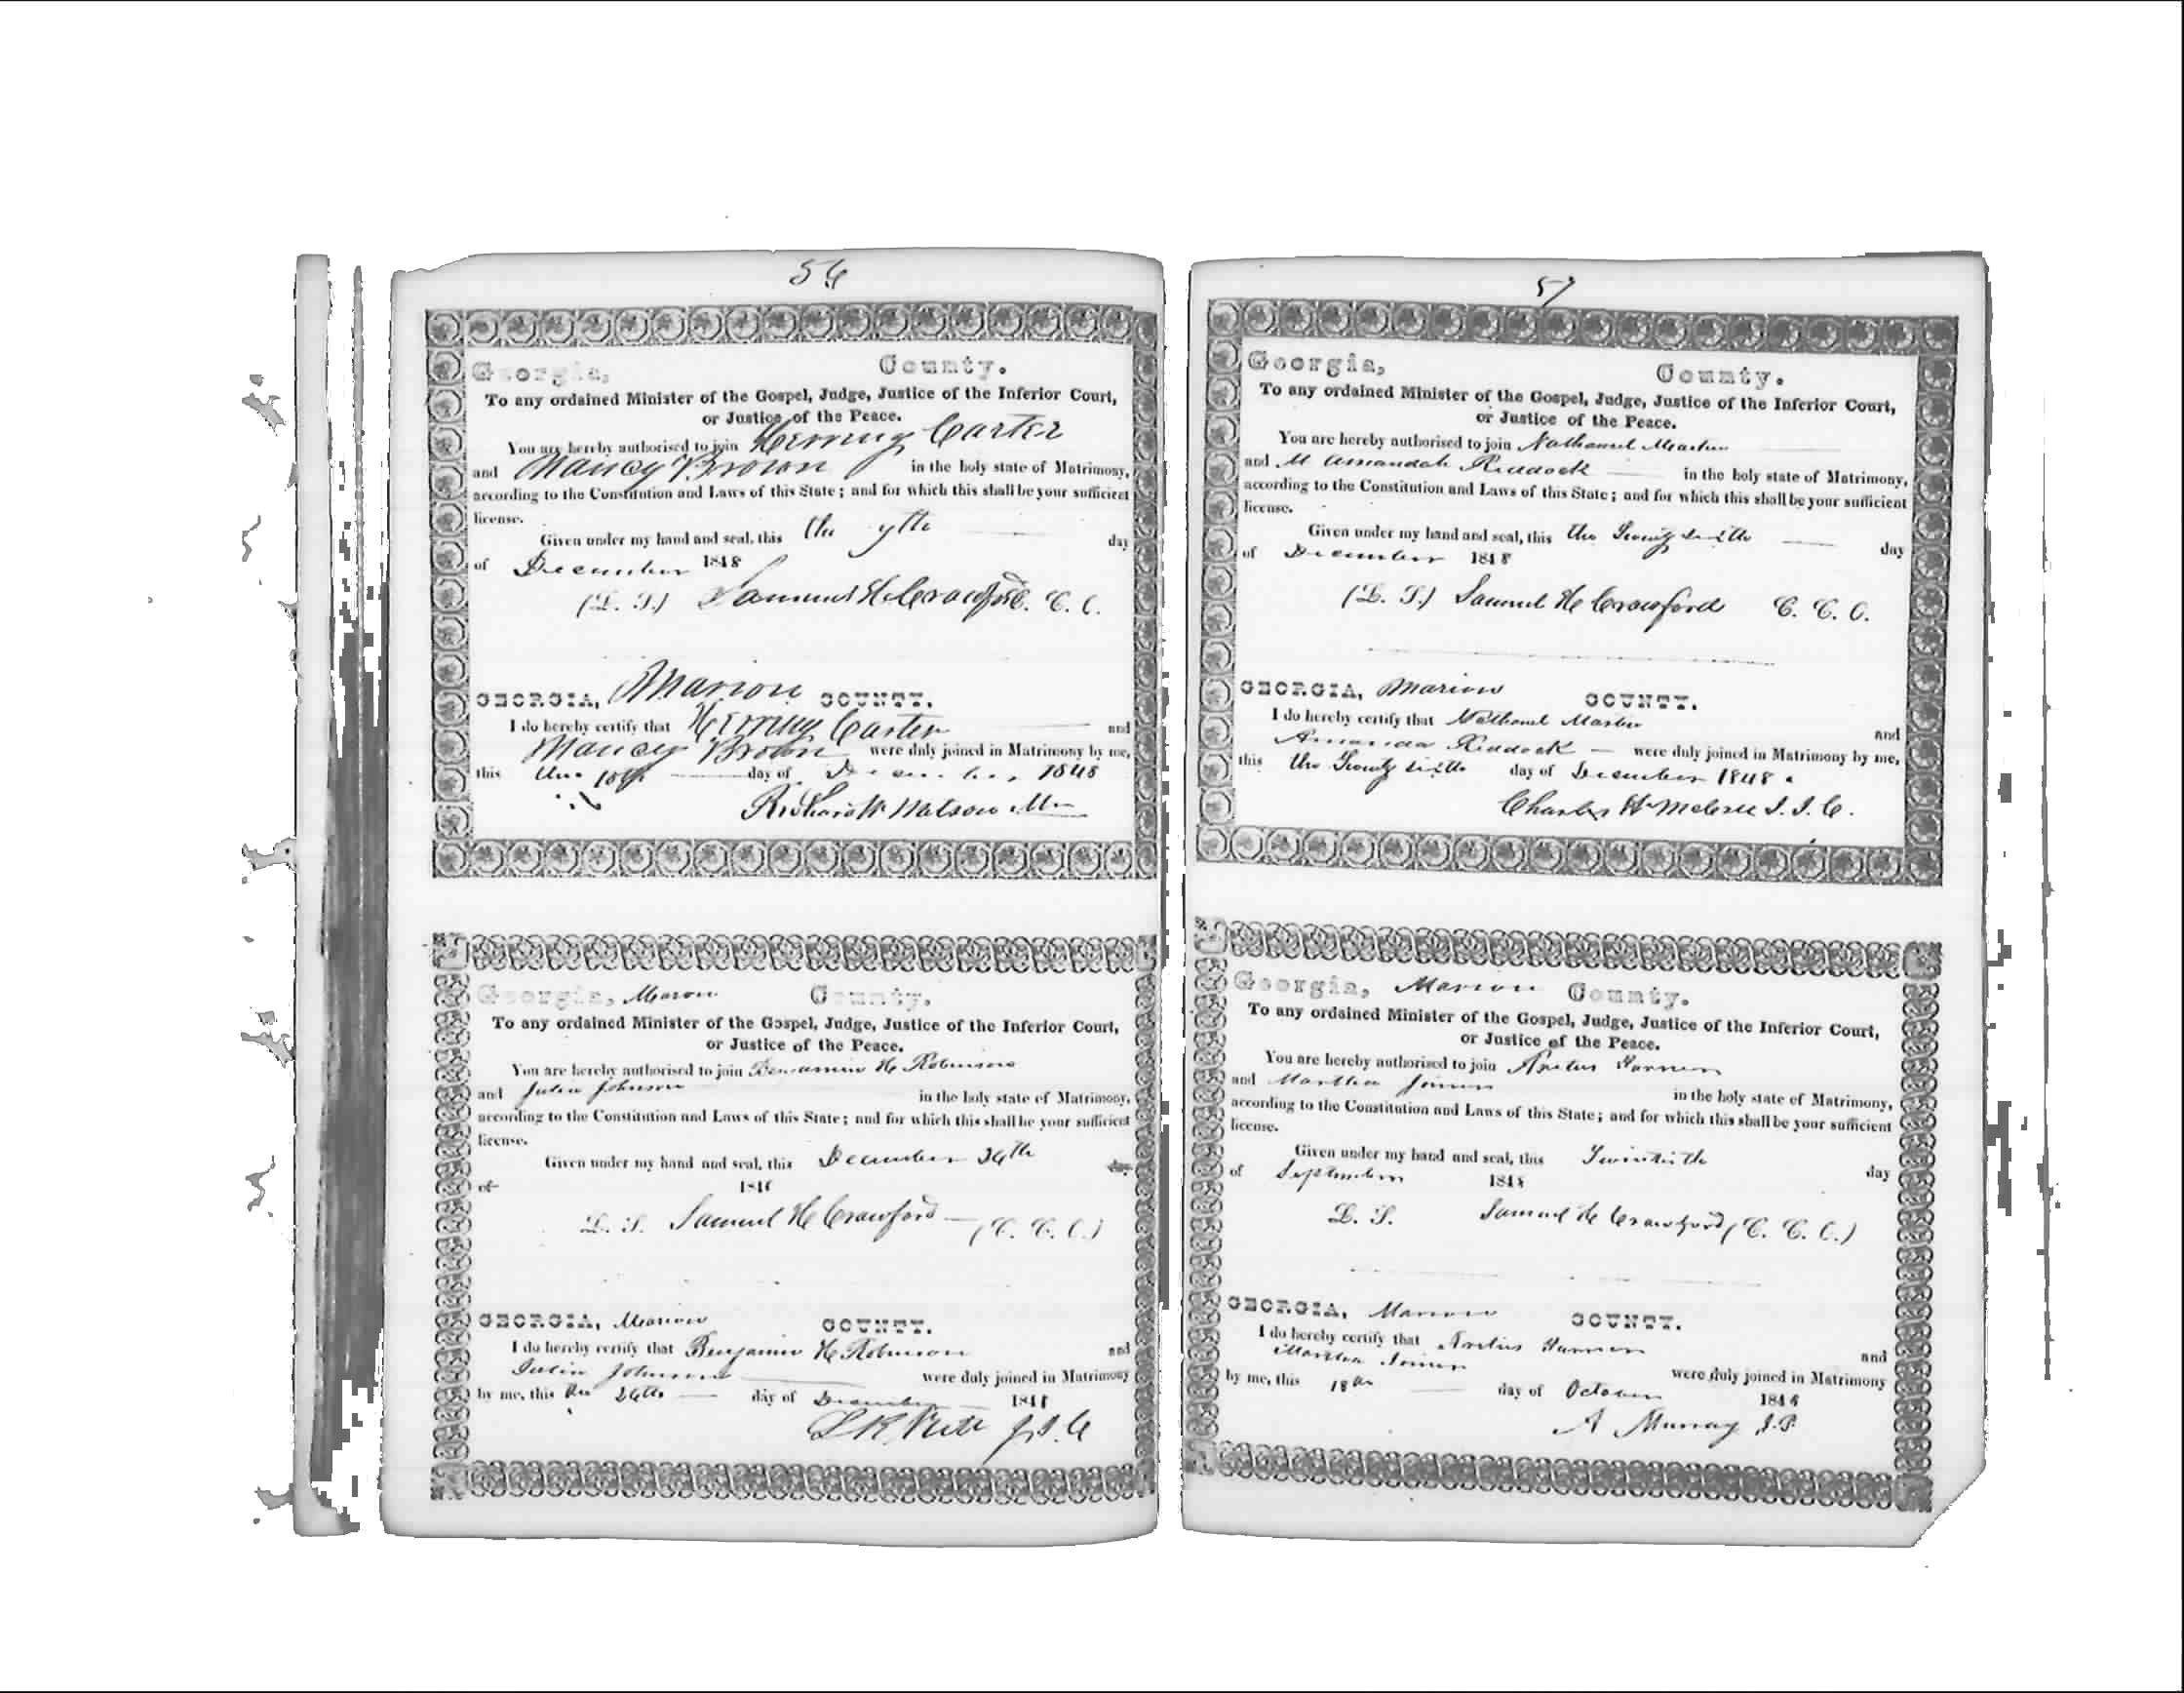 56
Georgia, County.
To any ordained Minister of the Gospel, Judge, Justice of the Inferior Court,
or Justice of the Peace.
You are hereby authorised to join Herring Carter
and Nancy Brown in the holy state of Matrimony,
according to the Constitution and Laws of this State; and for which this shall be your sufficient
license.
Given under my hand and seal, this the 7th day
of December 1848
(L. S.) Samuel H Crawford C. C. O.
GEORGIA, Marion COUNTY.
I do hereby certify that Herring Carter and
Nancy Brown were duly joined in Matrimony by me,
this the 10th day of December 1848
Richard W Matson
Georgia, Marion County.
To any ordained Minister of the Gospel, Judge, Justice of the Inferior Court,
or Justice of the Peace.
You are hereby authorised to join Benjamin H Robinson
and Julia Johnson in the holy state of Matrimony,
according to the Constitution and Laws of this State; and for which this shall be your sufficient
license.
Given under my hand and seal, this December 26th day
of 184
L. S. Samuel H Crawford (C. C. O.)
GEORGIA, Marion COUNTY.
I do hereby certify that Benjamin H Robinson and
Julia Johnson were duly joined in Matrimony
by me, this the 26th day of December 184
J. I. C
57
Georgia, County.
To any ordained Minister of the Gospel, Judge, Justice of the Inferior Court,
or Justice of the Peace.
You are hereby authorised to join Nathaniel
and M Amandah Riddock in the holy state of Matrimony,
according to the Constitution and Laws of this State; and for which this shall be your sufficient
license.
Given under my hand and seal, this the Twenty sixth day
of December 1848
(L. S.) Samuel H Crawford C. C. O.
GEORGIA, Marion COUNTY.
I do hereby certify that Nathaniel and
Amanda Riddock were duly joined in Matrimony by me,
this the Twenty sixth day of December 1848.
Charles H McCree J. I. C.
Georgia, Marion County.
To any ordained Minister of the Gospel, Judge, Justice of the Inferior Court,
or Justice of the Peace.
You are hereby authorised to join
and Martha Joiner in the holy state of Matrimony,
according to the Constitution and Laws of this State; and for which this shall be your sufficient
license.
Given under my hand and seal, this Twintieth day
of September 1848
L. S. Samuel H Crawford (C. C. O.)
GEORGIA, Marion COUNTY.
I do hereby certify that and
Martha Joiner were duly joined in Matrimony
by me, this 18th day of October 1848
A Murray J. P.